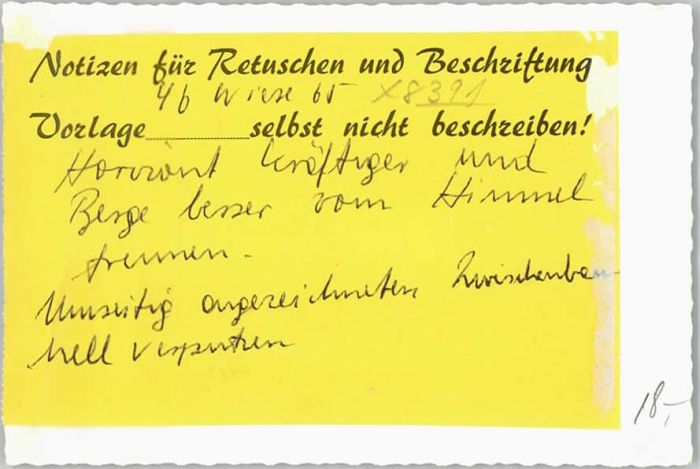 Notizen für Retuschen und Beschriftung
4f Wiese 65 X8391
Vorlage selbst nicht beschreiben!
Horizont kräftiger und
Berge besser vom Himmel
trennen.
Umseitig angezeichneten Zwischenbau
hell verputzen
18,-